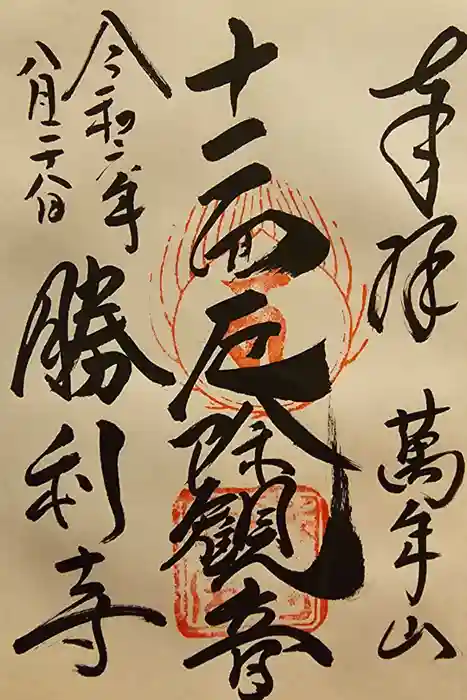 奉拝
萬年山
十一面厄除観音
令和六年
八月二十八日
勝利寺